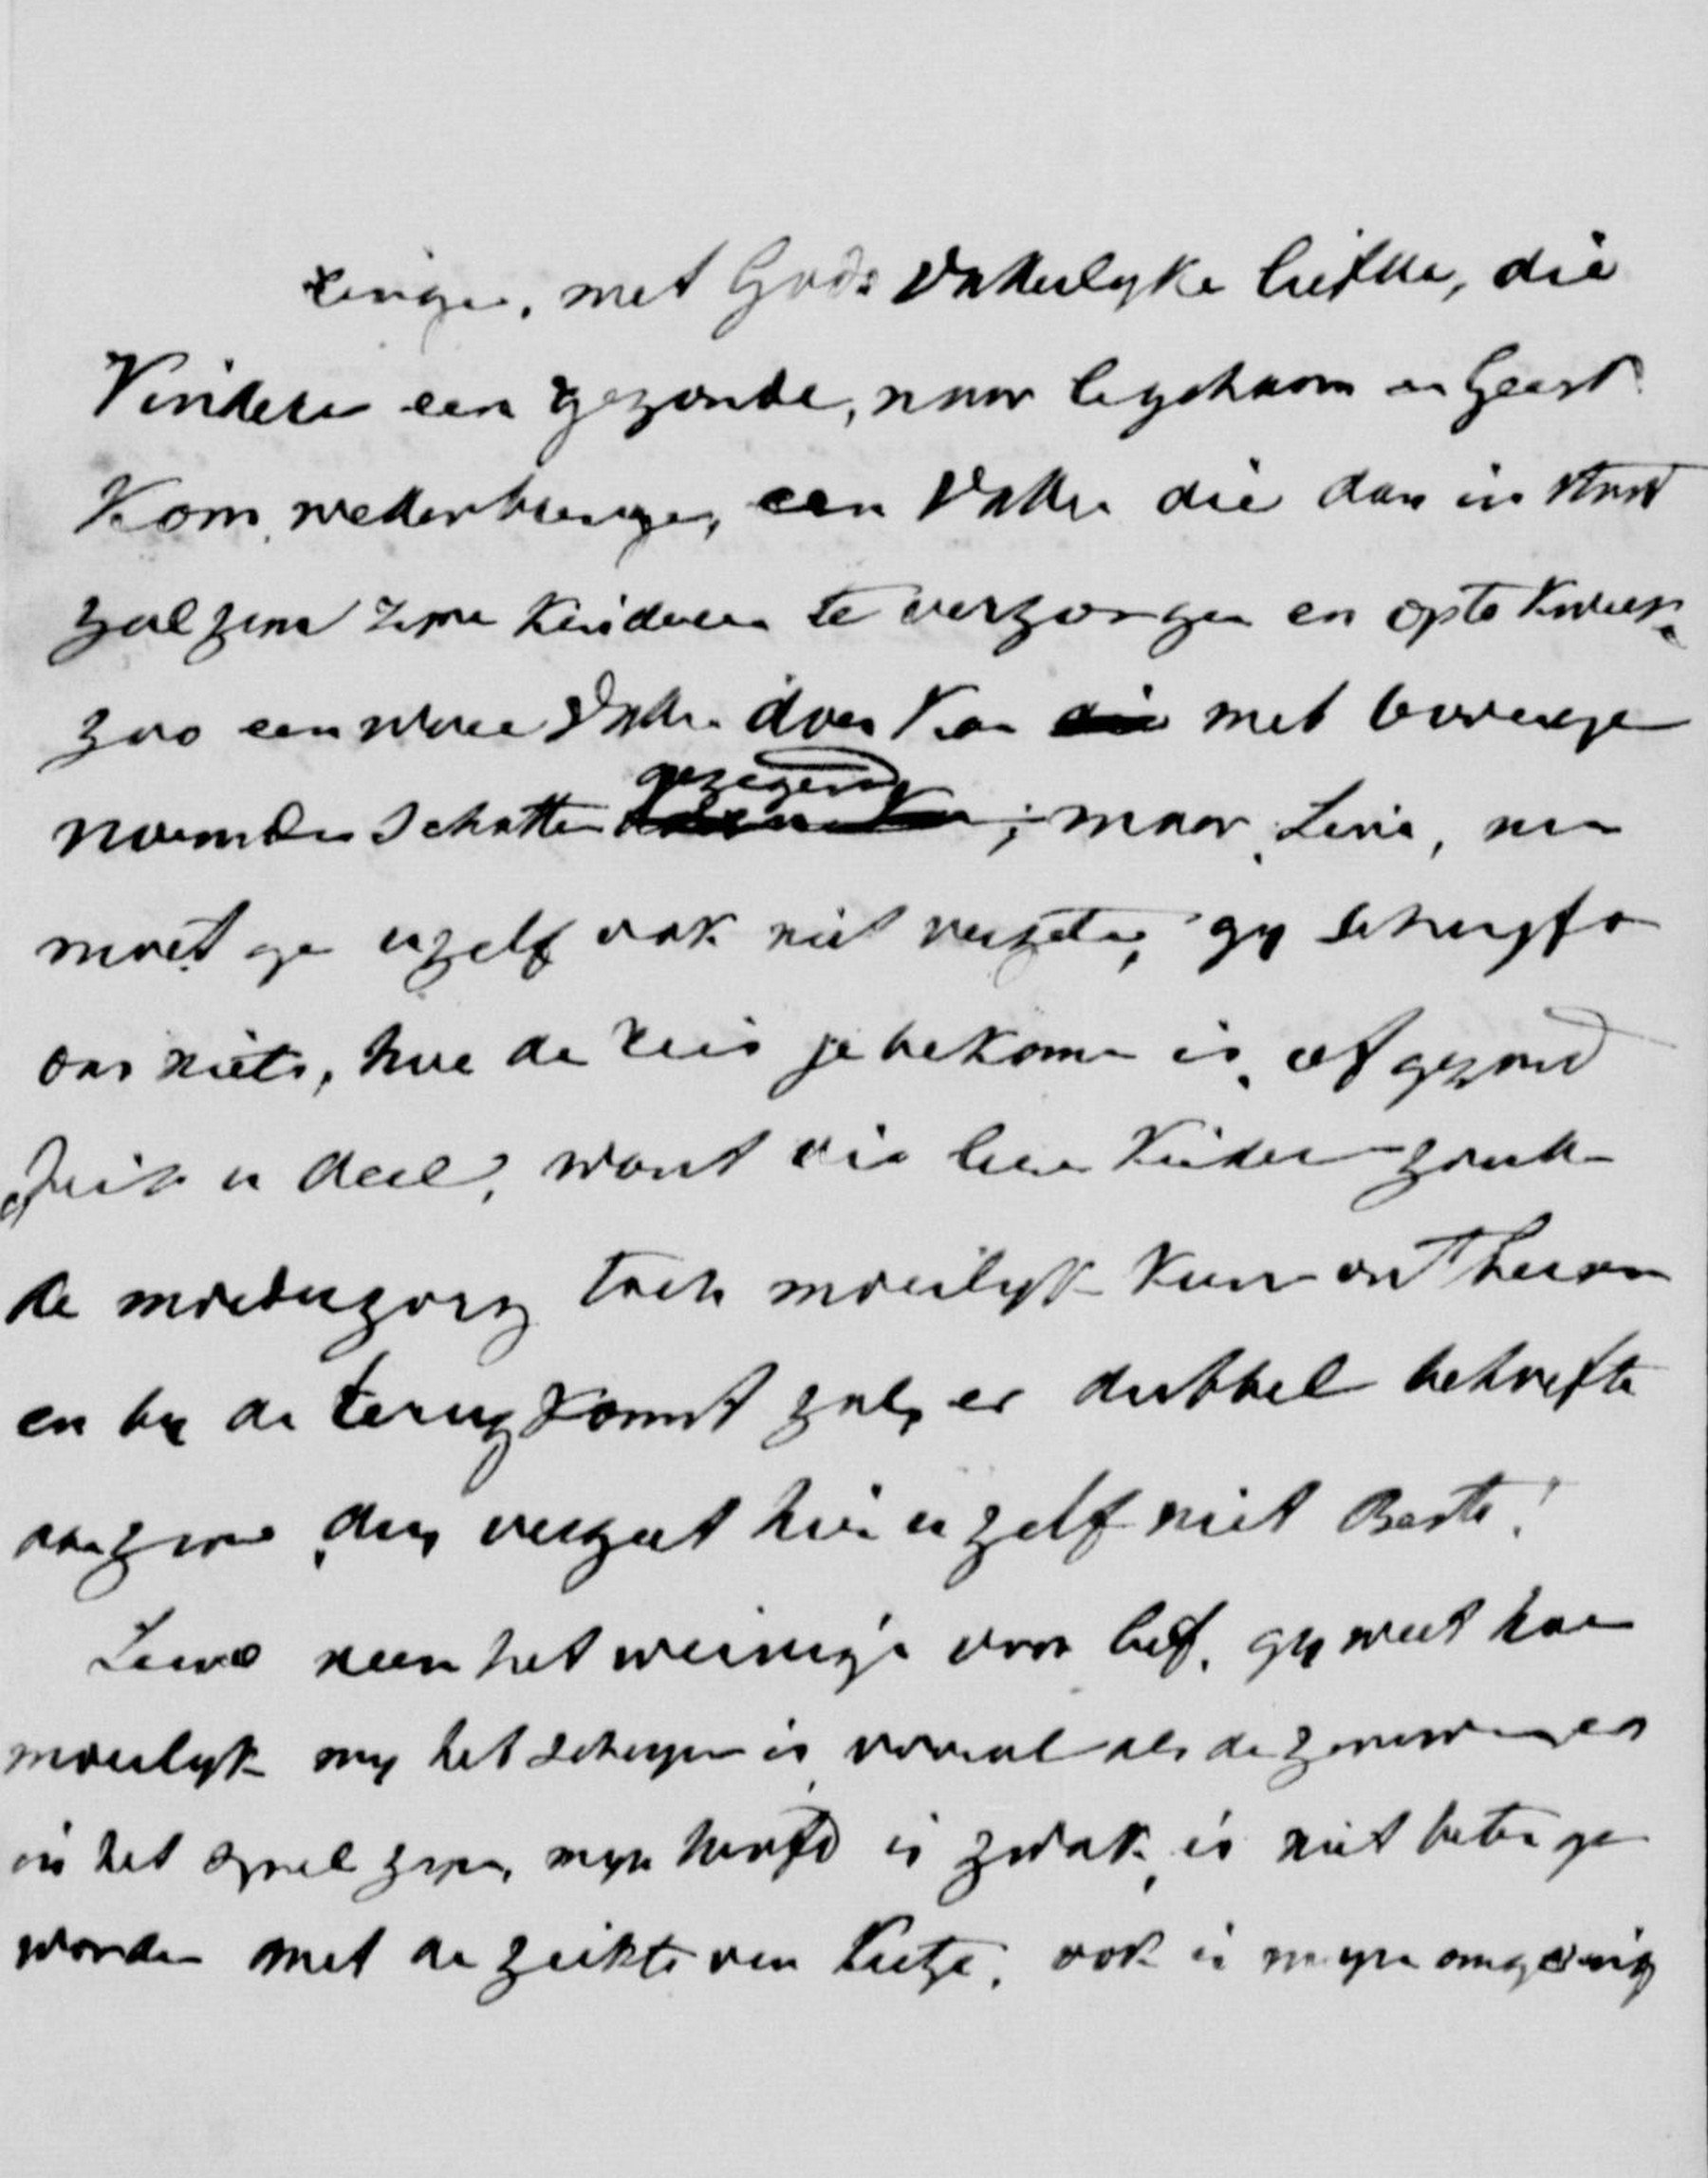 met Gods Vaderlyke liefde, die
Kinderen een gezonde, naar ligchaam en Geest
Kom wederbrengen, een Vader die dan in staat
zal zyn zyne Kinderen te verzorgen en opte Kweeken
zoo een ware Vader doen Kan met bovenge
noemden Schatten gezegend; maar, Lina, nu
moet ge uzelf ook niet vergeten, gy schryft
ons niets, hoe de reis je bekomen is, of gezond
is u deel, want die lieve Kinderen zoude
de moederzorg toch moeilyk Kunn ontbeeren
en by de terugkomst zal er dubbel behoefte
aanzyn, dus vergeet hier uzelf niet Beste!
neem het weinige voor lief, gy weet hoe
moeilyk my het schryven is vooral als de zenuwen er
in het spel zyn, myn hoofd is zwak, is niet beter ge
worden met de ziekte van ook is myne omgeving